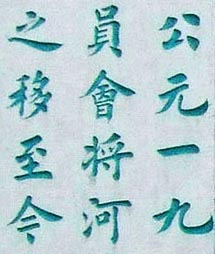 公元一九
員會将河
之移至今